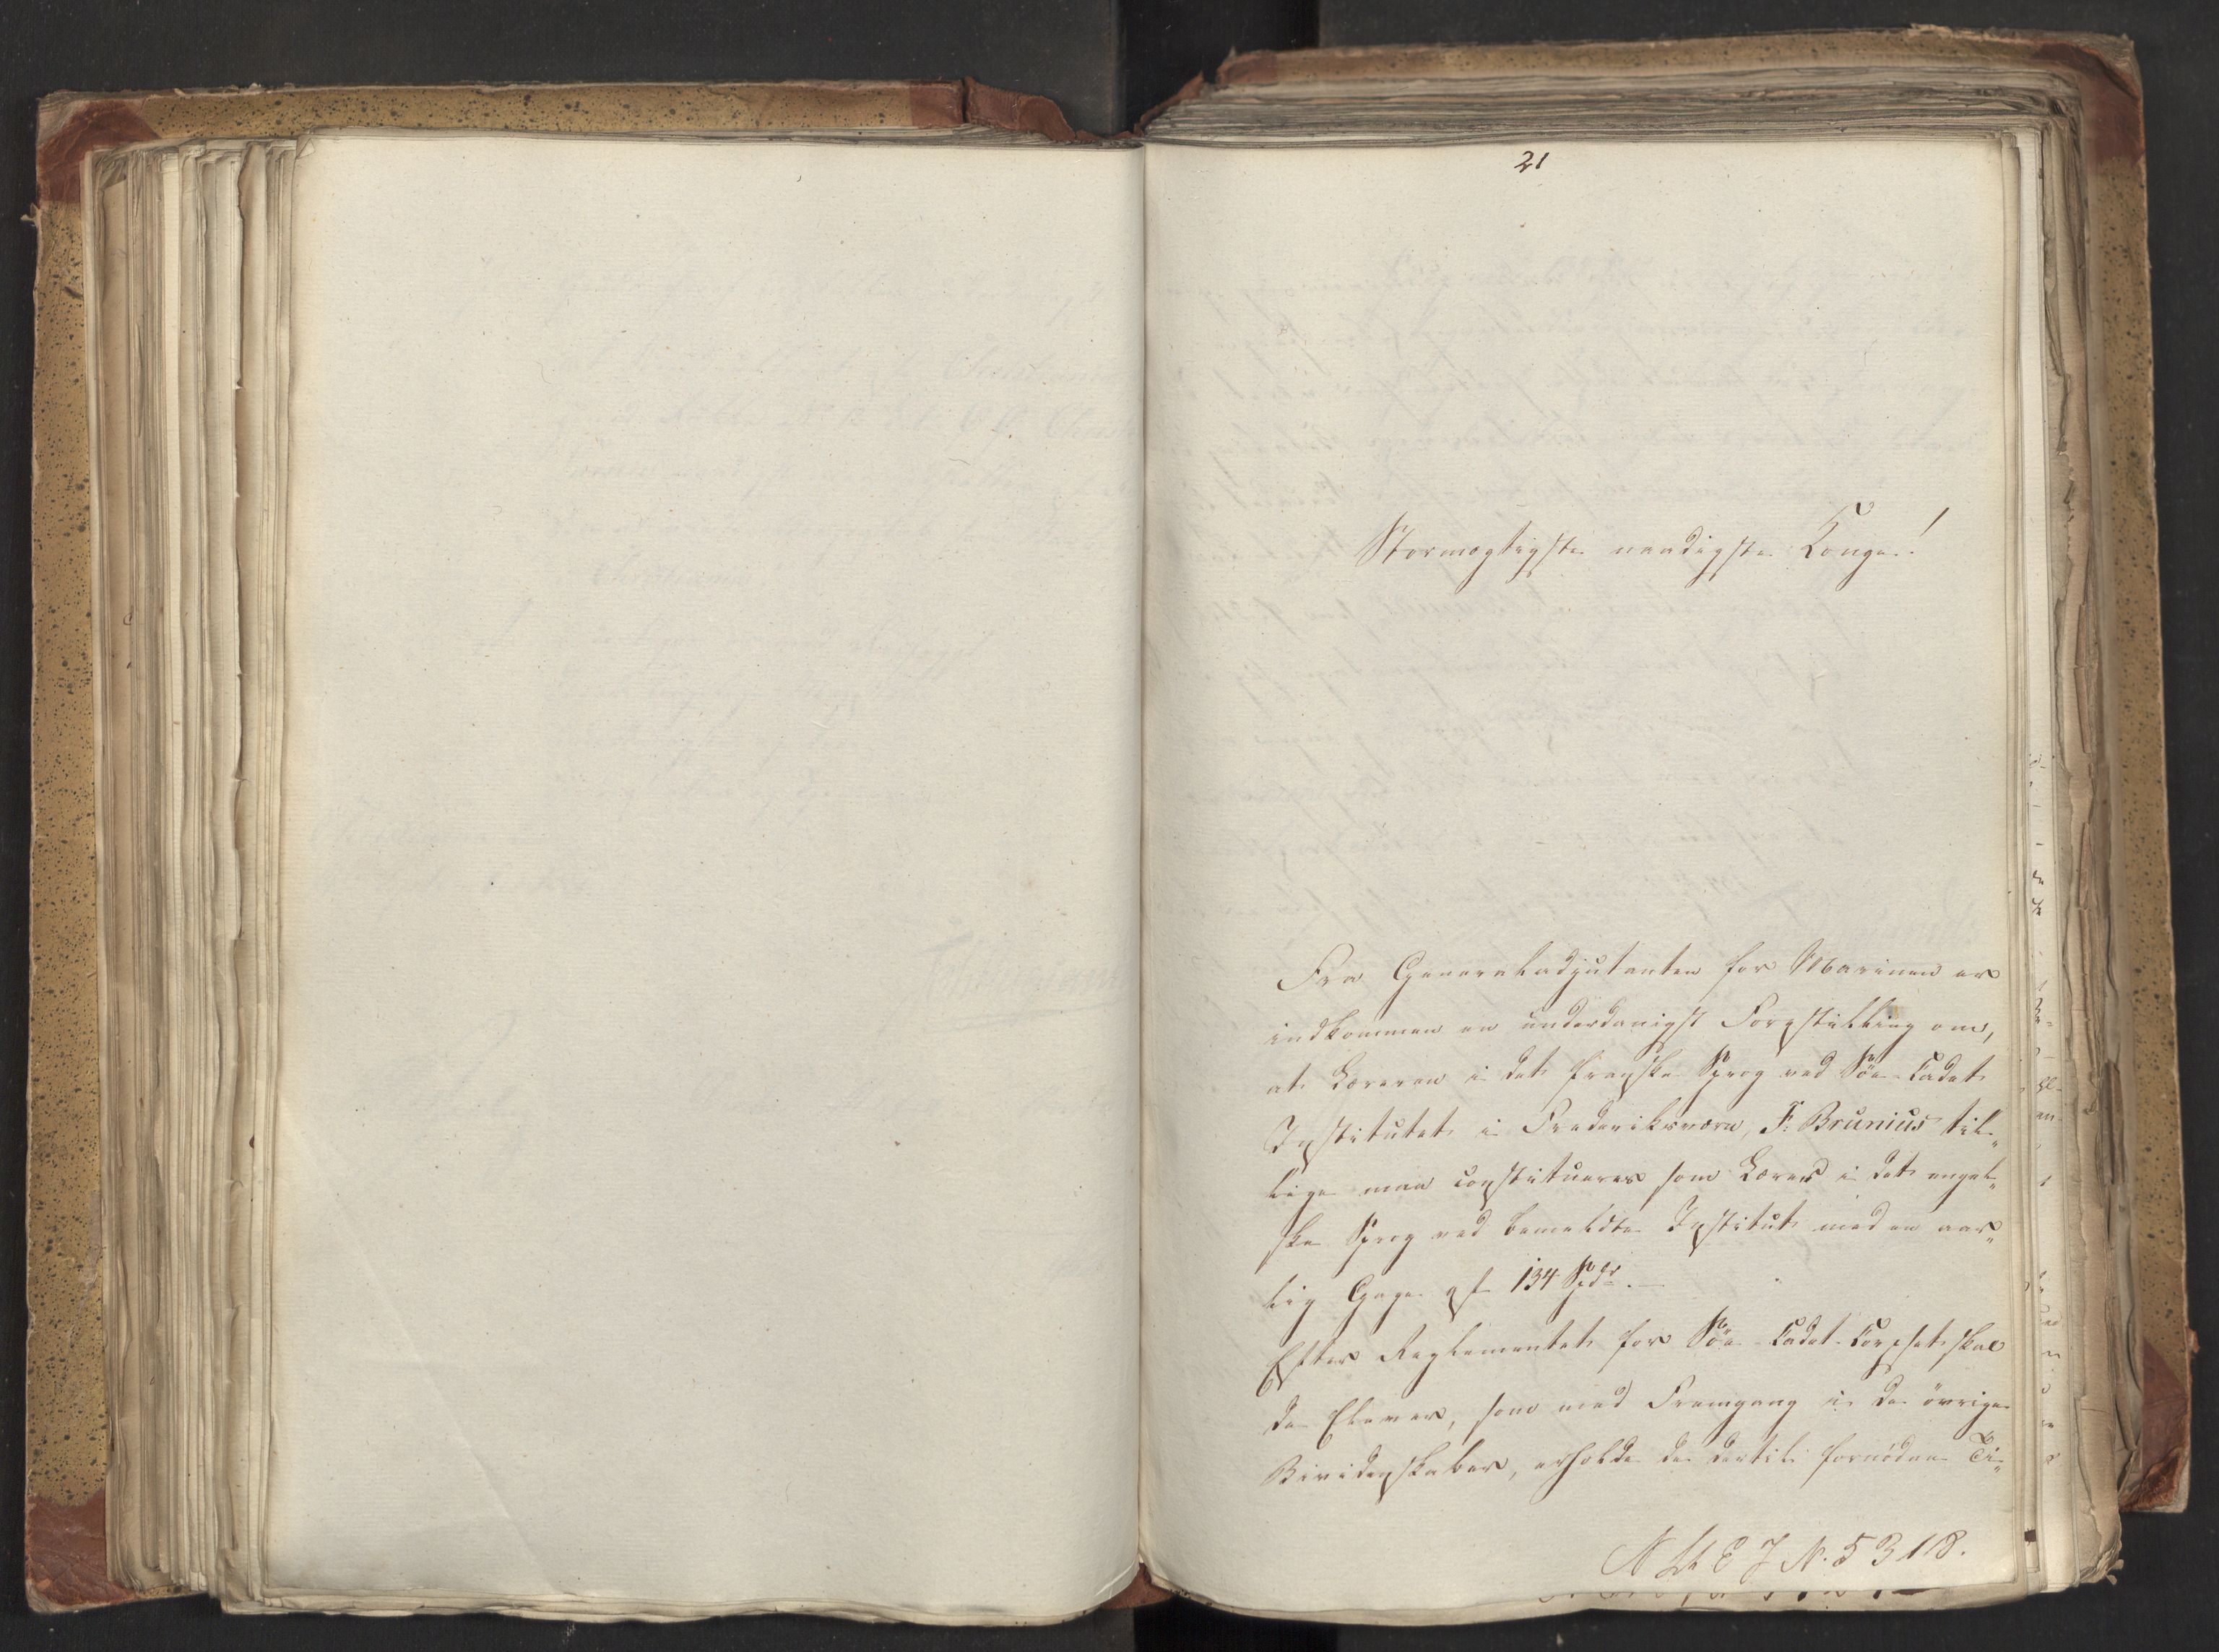 21
Stormægtigste naadigste Konge!
Fra Generaladjutanten for Marinen er
indkommen en underdanigst Forestilling om,
at Læreren i det franske Sprog ved Söe-Cadet
Institutet i Frederiksværn, F: Brunius til„
lige maa constitueres som Lærer i det engel„
ske Sprog ved bemeldte Institut med en aar„
lig Gage af 134 Spdr. —
Efter Reglementet for Söe-Cadet-Corpset skal
de Elever, som med Fremgang i de övrige
Bividenskaber, erholde de dertil fornödne Ti„
N. 5318.